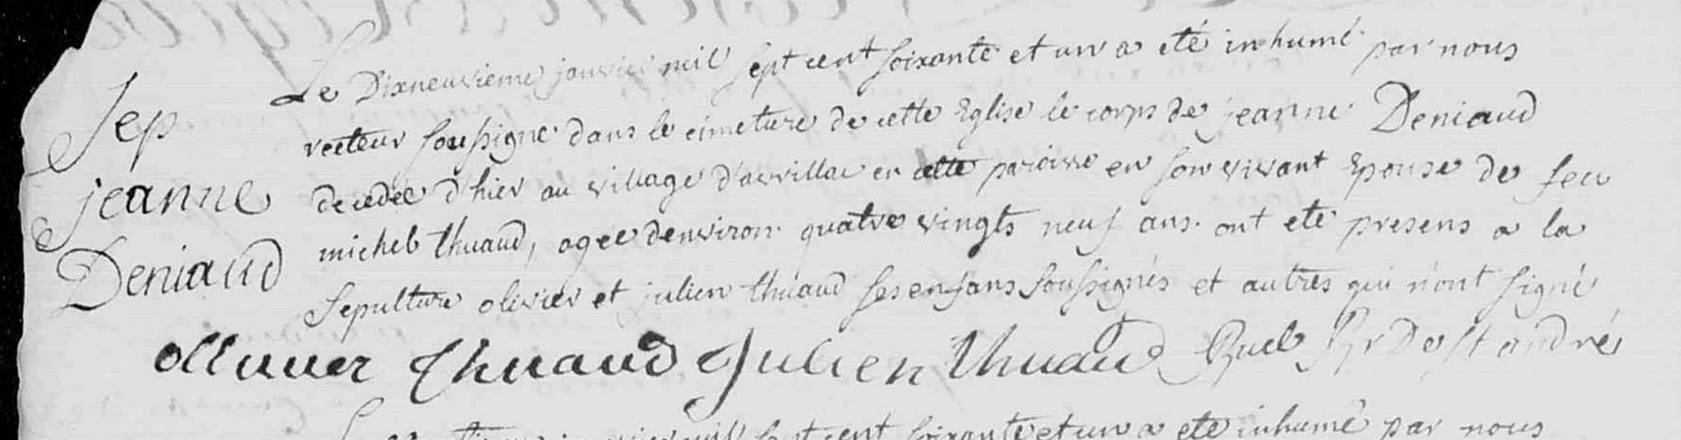 Sep
jeanne
Deniaud
Le Dixneuvieme janvier mil sept cent soixante et un a eté inhumé par nous
recteur soussigné dans le cimeture de cette Eglise le corps de jeanne Deniaud
decedée d'hier au village d'avvillac en cette paroisse en son vivant Epouse de feu
michel thuaud, agee denviron quatre vingts neuf ans. ont eté presens a la
sepulture olivier et julien thuaud ses enfans soussignés et autres qui n'ont signé
ollivier Thuaud Julien thuaud De st andré
janvier mil sept cent soixante et un a eté inhumé par nous